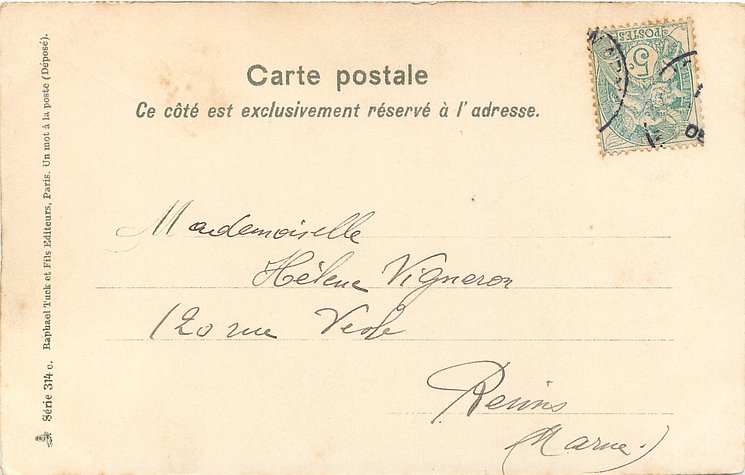 Carte postale
Ce côté est exclusivement réservé à l'adresse.
POSTES
5
05
Mademoiselle
Hélène Vigneron
120 rue Vesle
Reims
(Marne.)
Série 314 c. Raphael Tuck et Fils Editeurs, Paris. Un mot à la poste (Déposé).